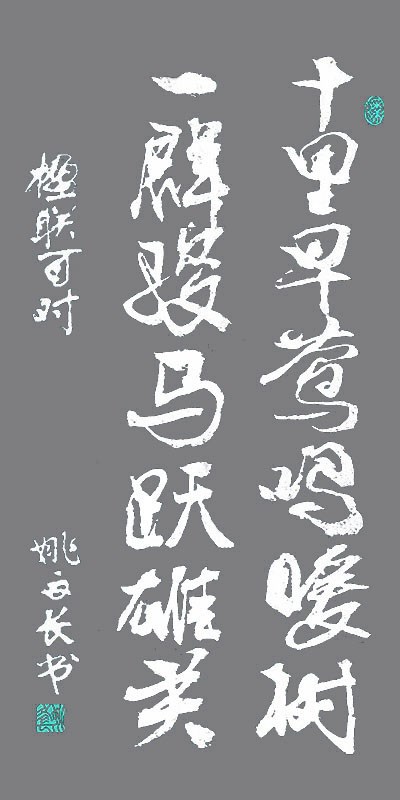 十里早莺鸣暖树
一群骏马跃雄关
楹联对
姚长书